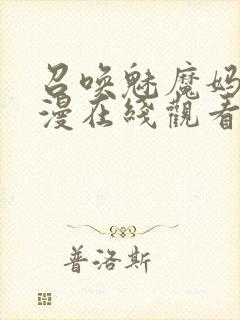 召唤魅魔妈
漫在线觀看
普洛斯